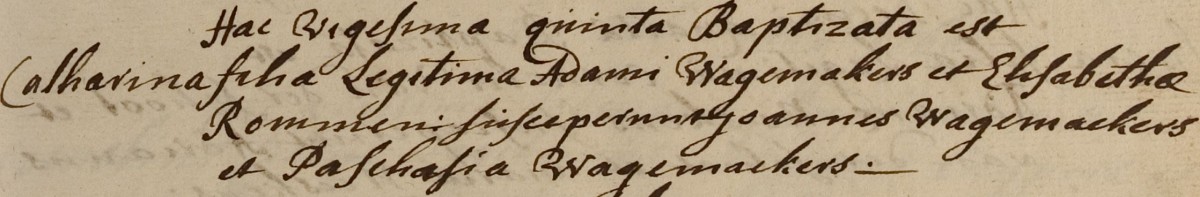 Hac Vigesima quinta Baptizata est
Catharina filia Legitima Adami Wagemakers et Elisabethæ
Rommen: susceperunt Joannes Wagemackers
et Paschasia Wagemackers.